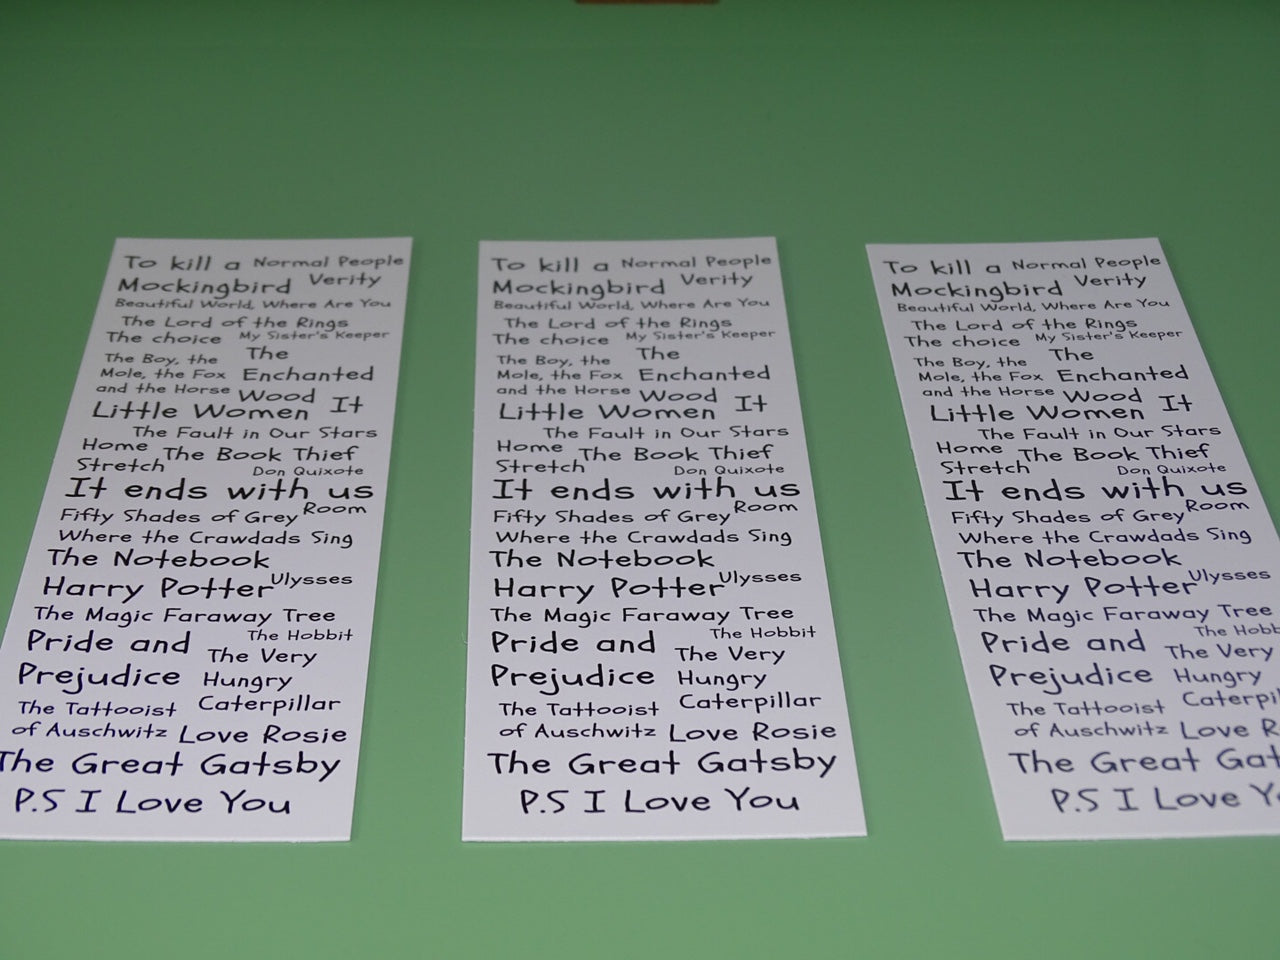 To kill a Normal People
Mockingbird Verity
Beautiful World, Where Are You
The Lord of the Rings
The choice My Sister's Keeper
The Boy, the The
Mole, the Fox Enchanted
and the Horse Wood It
Little Women
The Fault in Our Stars
Home The Book Thief
Stretch Don Quixote
It ends with us
Fifty Shades of Grey Room
Where the Crawdads Sing
The Notebook
Harry Potter Ulysses
The Magic Faraway Tree
Pride and The Hobbit
The Very
Prejudice Hungry
The Tattooist Caterpillar
of Auschwitz Love Rosie
The Great Gatsby
P.S I Love You
To kill a Normal People
Mockingbird Verity
Beautiful World, Where Are You
The Lord of the Rings
The choice My Sister's Keeper
The Boy, the The
Mole, the Fox Enchanted
and the Horse Wood It
Little Women
The Fault in Our Stars
Home The Book Thief
Stretch Don Quixote
It ends with us
Fifty Shades of Grey Room
Where the Crawdads Sing
The Notebook
Harry Potter Ulysses
The Magic Faraway Tree
Pride and The Hobbit
The Very
Prejudice Hungry
The Tattooist Caterpillar
of Auschwitz Love Rosie
The Great Gatsby
P.S I Love You
To kill a Normal People
Mockingbird Verity
Beautiful World, Where Are You
The Lord of the Rings
The choice My Sister's Keeper
The Boy, the The
Mole, the Fox Enchanted
and the Horse Wood It
Little Women
The Fault in Our Stars
Home The Book Thief
Stretch Don Quixote
It ends with us
Fifty Shades of Grey Room
Where the Crawdads Sing
The Notebook
Harry Potter Ulysses
The Magic Faraway Tree
Pride and The
The Very
Prejudice Hungry
The Tattooist
of Auschwitz Love
The Great
P.S I Love